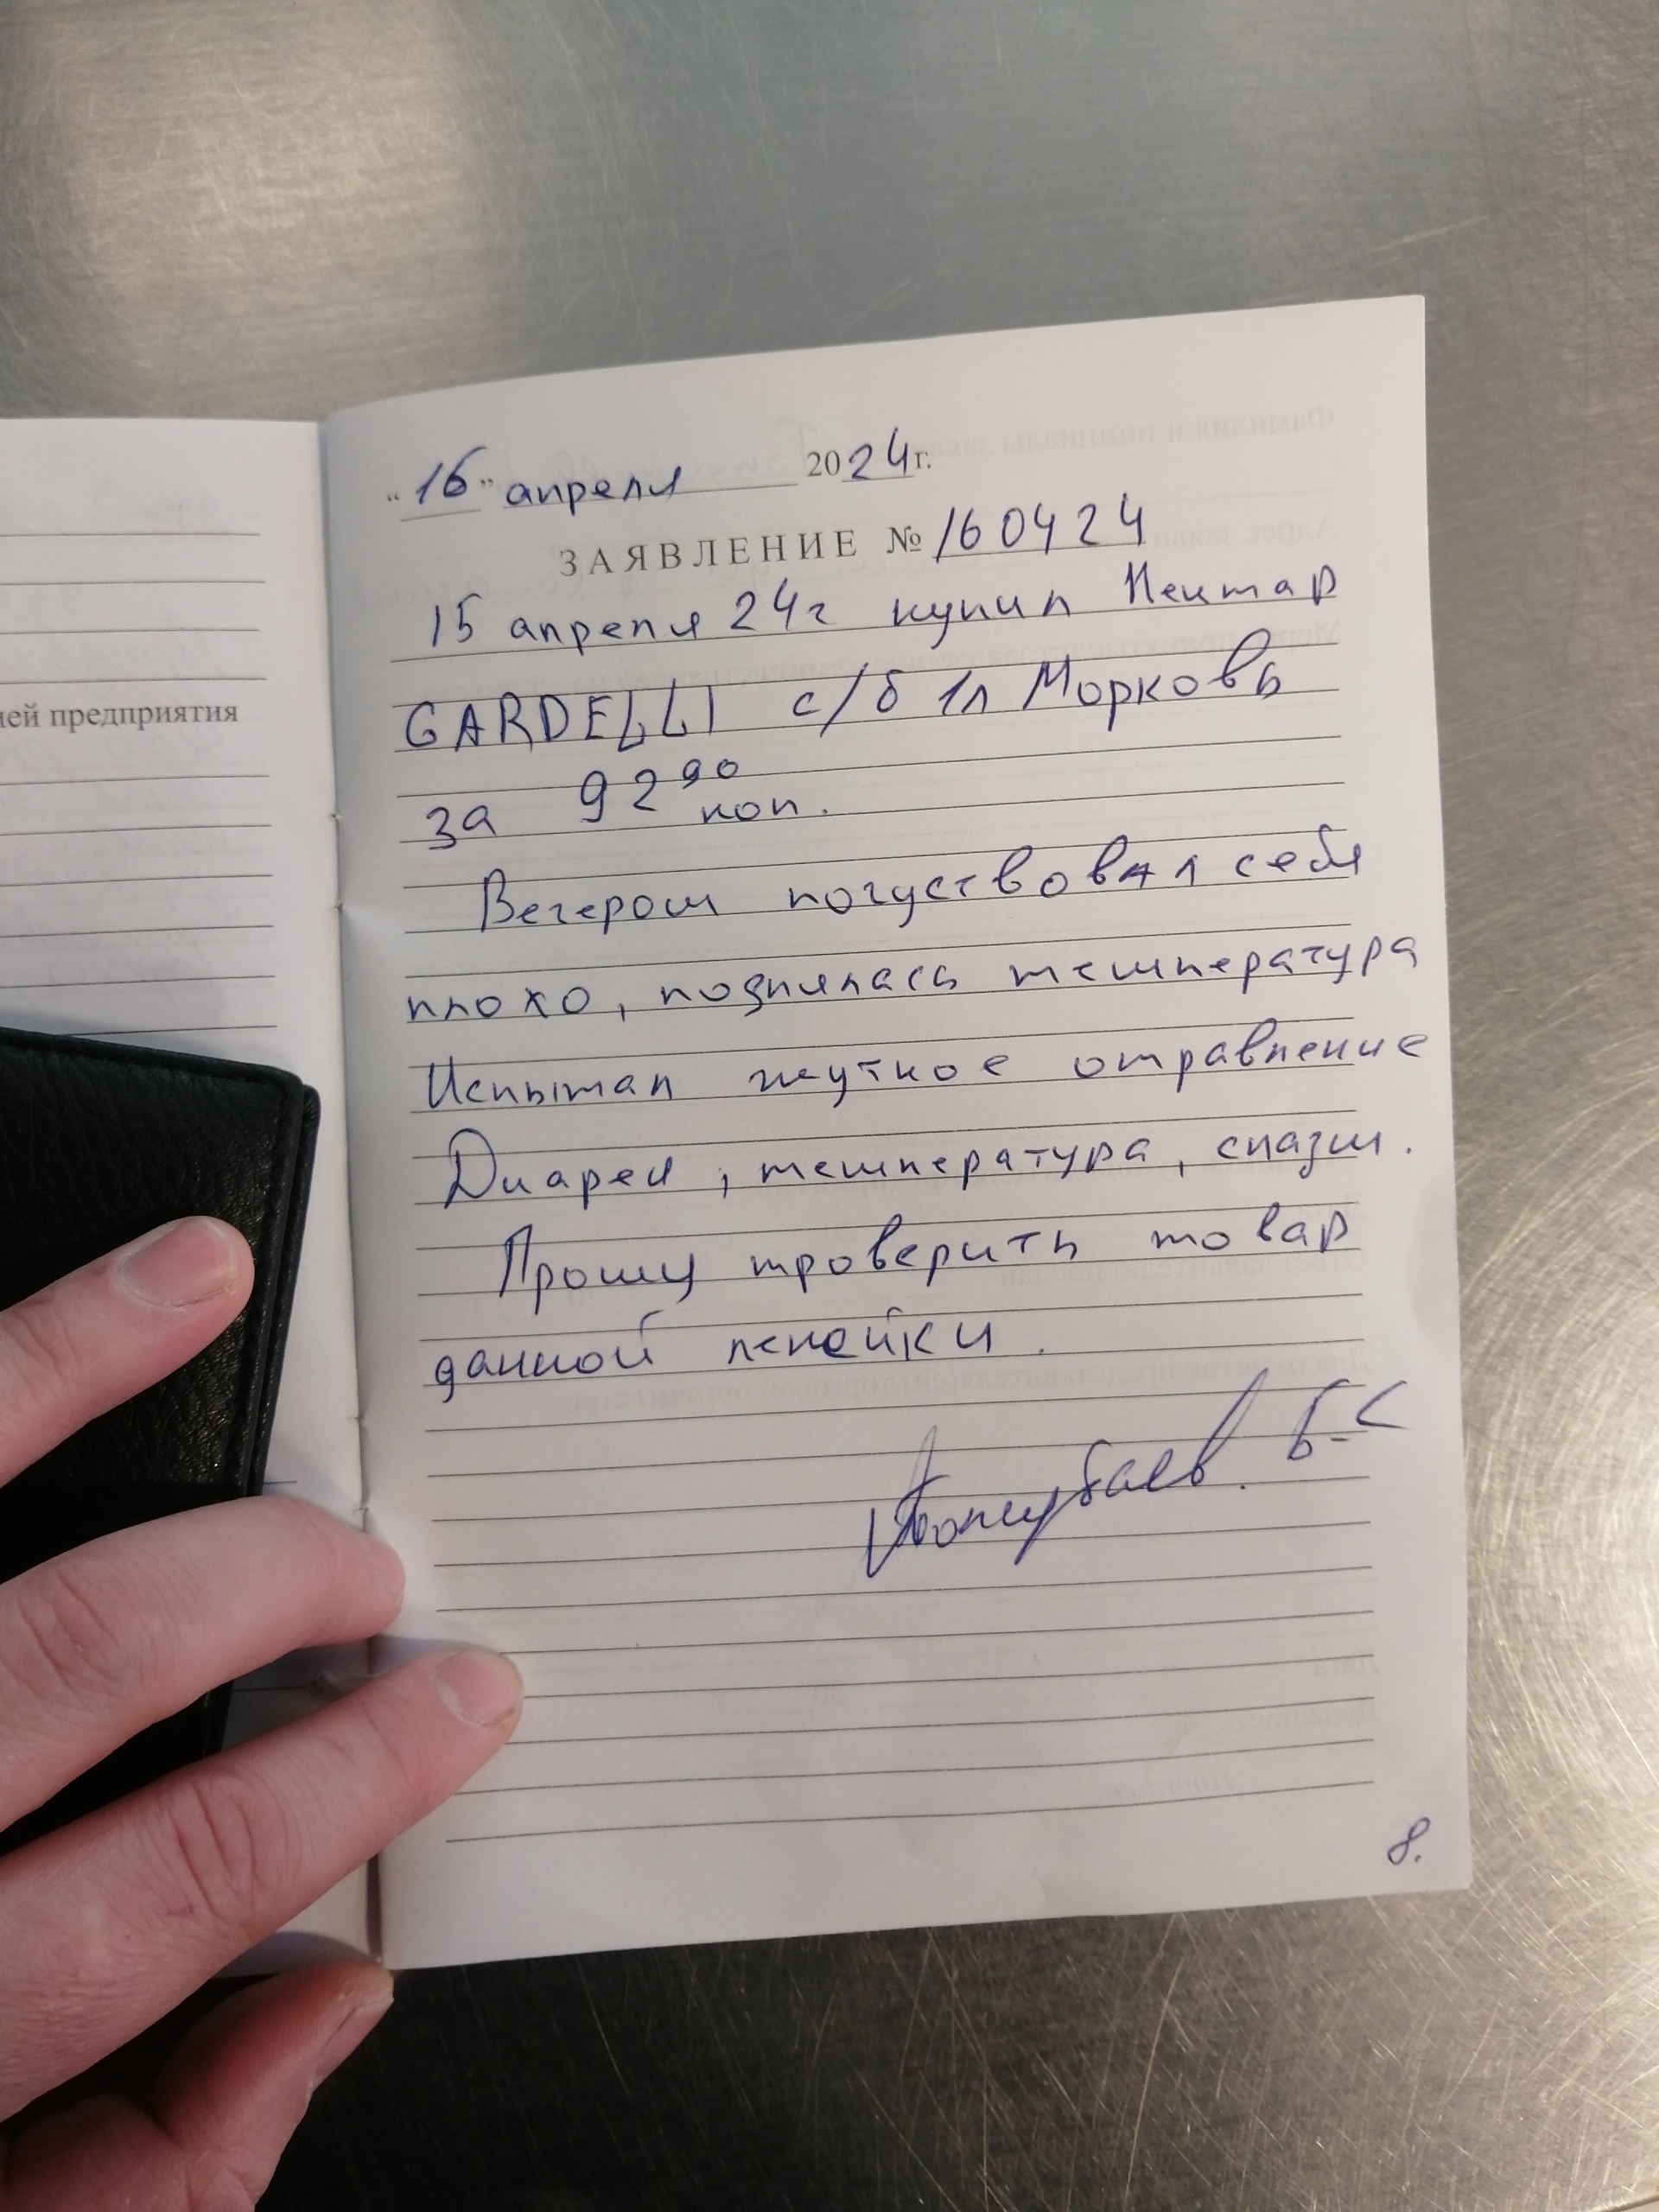 ией предприятия
"16" апреля 2024г.
ЗАЯВЛЕНИЕ №160424
15 апреля 24г купил Нектар
GARDELLI с/б 1л Морковь
за 92 90 коп.
Вечером почуствовал себя
плохо, поднялась температура
Испытал жуткое отравление
Диарея, температура, спазм.
Прошу проверить товар
данной ленейки.
Б-С
8.